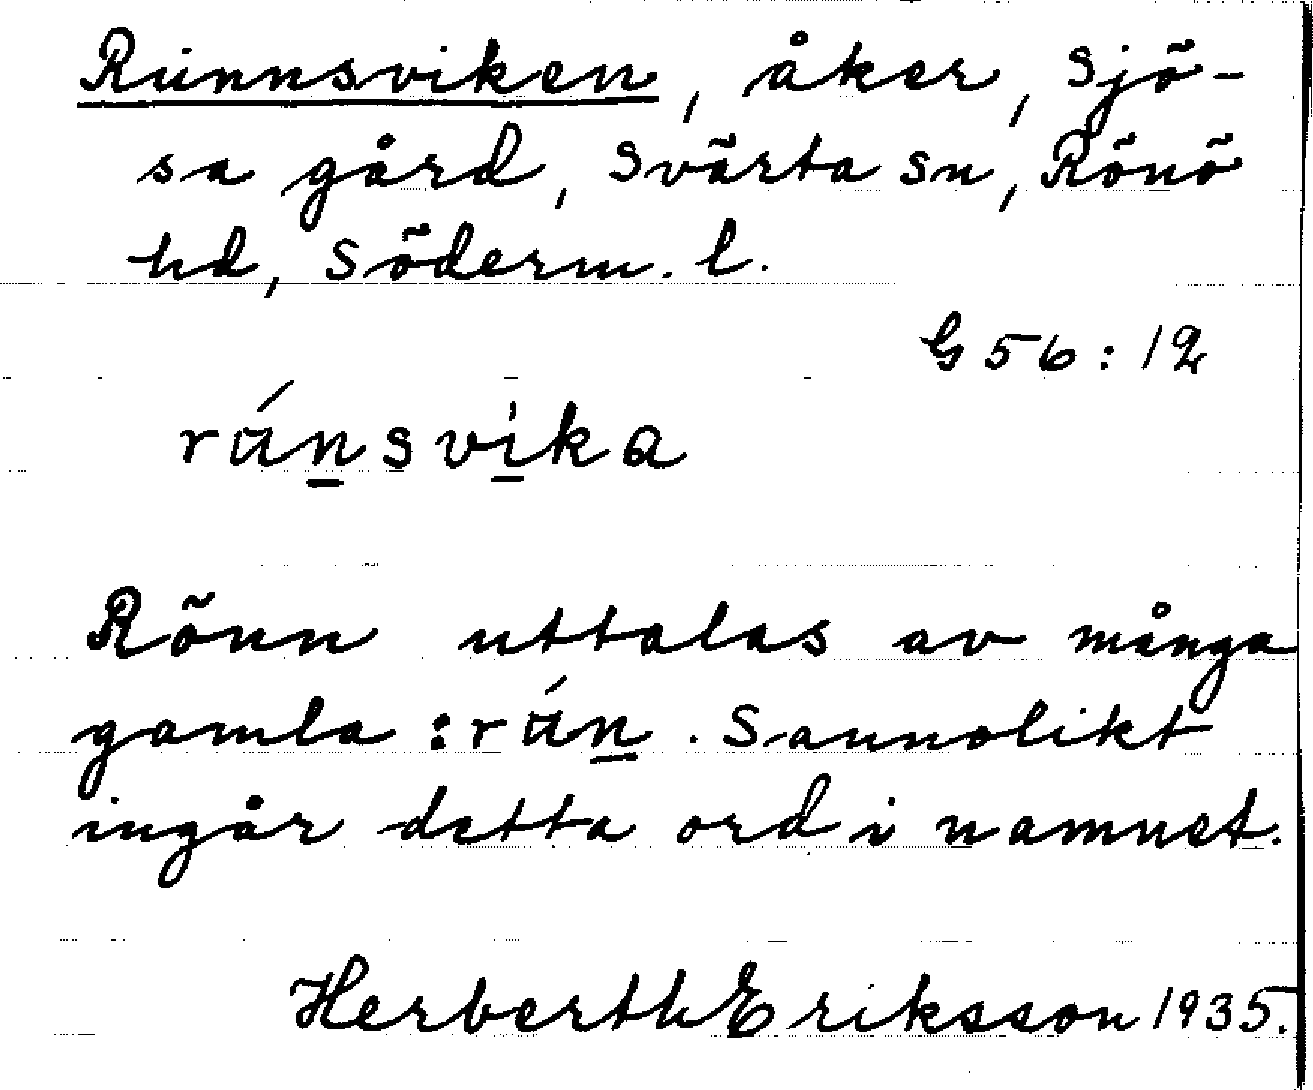 Runnsviken, åker, Sjö-
sa gård, Svärta sn, Rönö
hd, Söderm. l.
G 56:12
rúnsvika
Rönn uttalas av många
gamla :rún. Sannolikt
ingår detta ord i namnet.
Herberth Eriksson 1935.